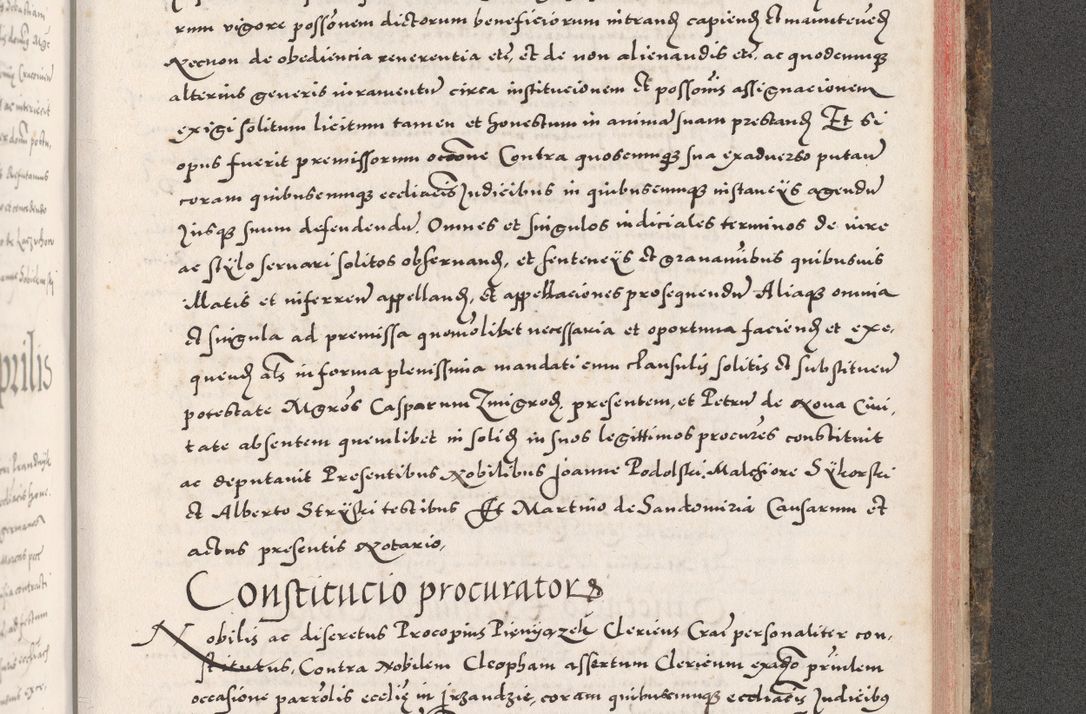 rum vigore possonem dictorum beneficiorum intrand capiend et manutened
Necnon de obediencia reverentia etc, et de non alienandis etc, ac quodcunque
alterius generis iuramentum circa institucionem et possonis assignacionem
exigi solitum licitum tamen et honestum in animam suam prestand Et si
opus fuerit premissorum occone Contra quoscunque sua exadverso putan
coram quibuscunque eccliacis Judicibus in quibuscunque instancijs agendum
Jusque suum defendendum. Omnes et singulos iudiciales terminos de iure
ac stylo servari solitos observand, et sentencijs et gravaminibus quibusvis
illatis et inferren appelland, et appellaciones prosequendum Aliaque omnia
et singula ad premissa quomolibet necessaria et oportuna faciend et exe,
quend als in forma plenissima mandati cum clausulis solitis et substituen
potestate Mgros Casparum Zmigrod, presentem, et Petrum de Nova Civi,
tate absentem quemlibet in solid in suos legittimos procures constituit
ac deputavit Presentibus Nobilibus Joanne Podolski, Malchiore Sykorski
et Alberto Stryjski testibus Et Martino de Sandomiria Causarum et
actus presentis Notario,
Constitucio procuratoris
Nobilis ac discretus Procopius Pieniążek Clericus Crac personaliter con,
stitutus, Contra Nobilem Cleopham assertum Clericum exago privilem
occasione parrolis ecclie in Irzandzie, coram quibuscunque eccliacis Judicibus